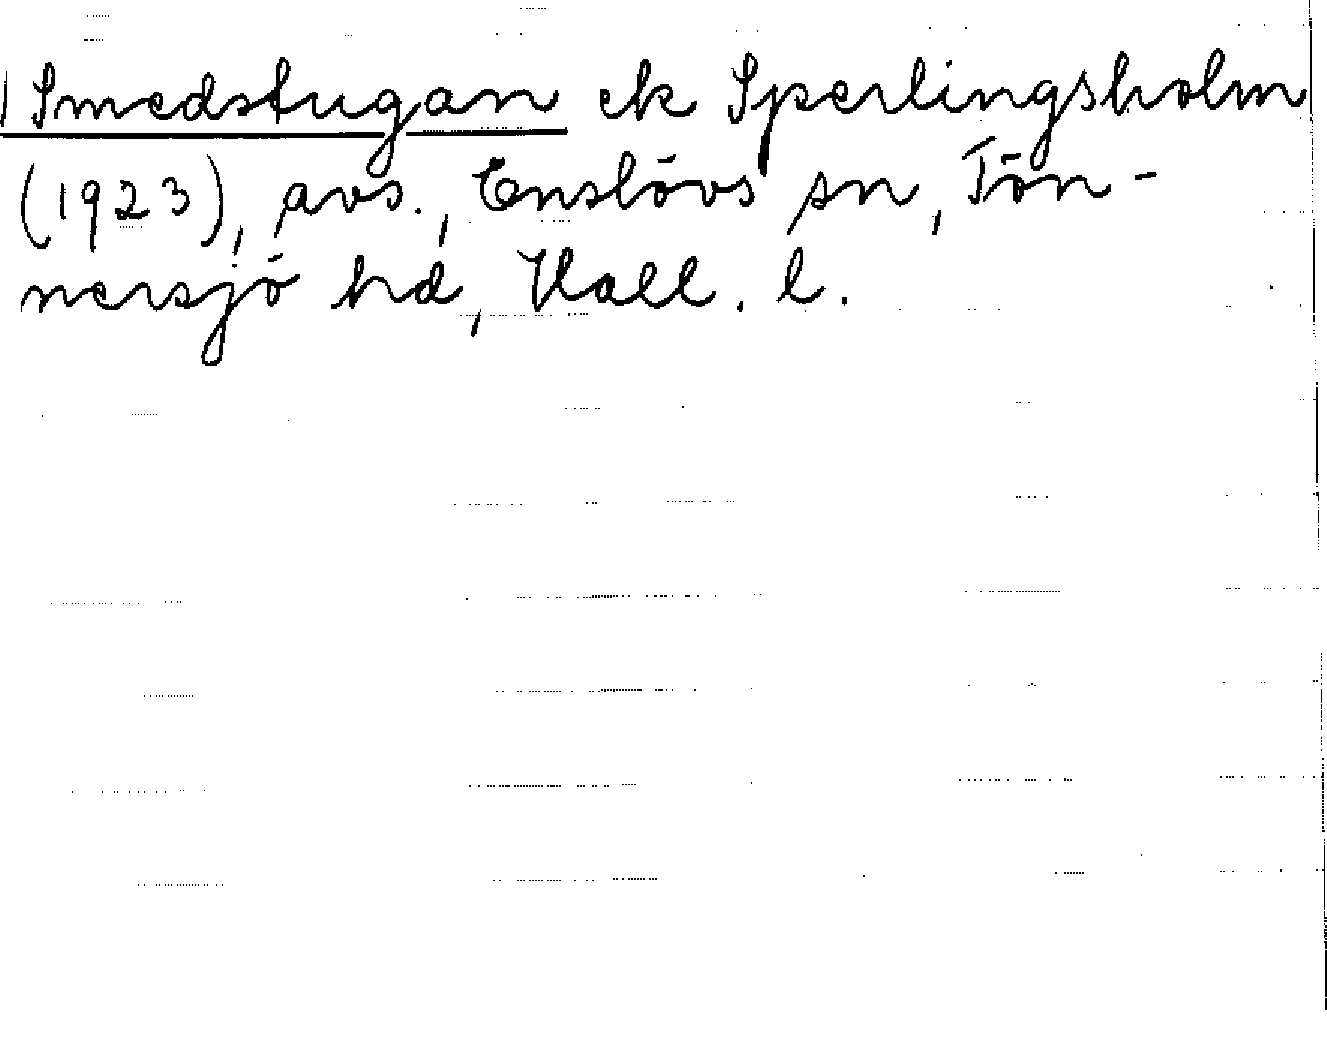 Smedstugan ek Sperlingsholm
(1923), avs., Enslövs sn, Tön-
nersjö hd, Hall. l.